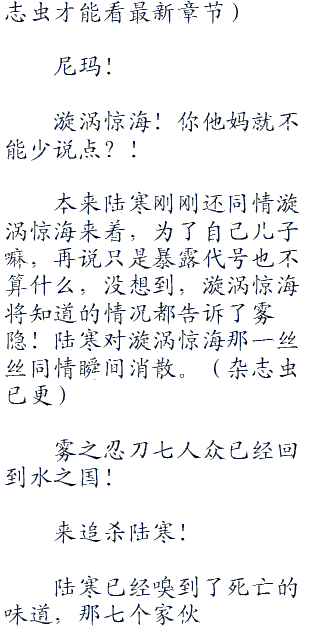 志虫才能看最新章节）
尼玛！
漩涡惊海！你他妈就不
能少说点？！
本来陆寒刚刚还同情漩
涡惊海来着，为了自己儿子
嘛，再说只是暴露代号也不
算什么，没想到，漩涡惊海
将知道的情况都告诉了雾
隐！陆寒对漩涡惊海那一丝
丝同情瞬间消散。（杂志虫
已更）
雾之忍刀七人众已经回
到水之国！
来追杀陆寒！
陆寒已经嗅到了死亡的
味道，那七个家伙